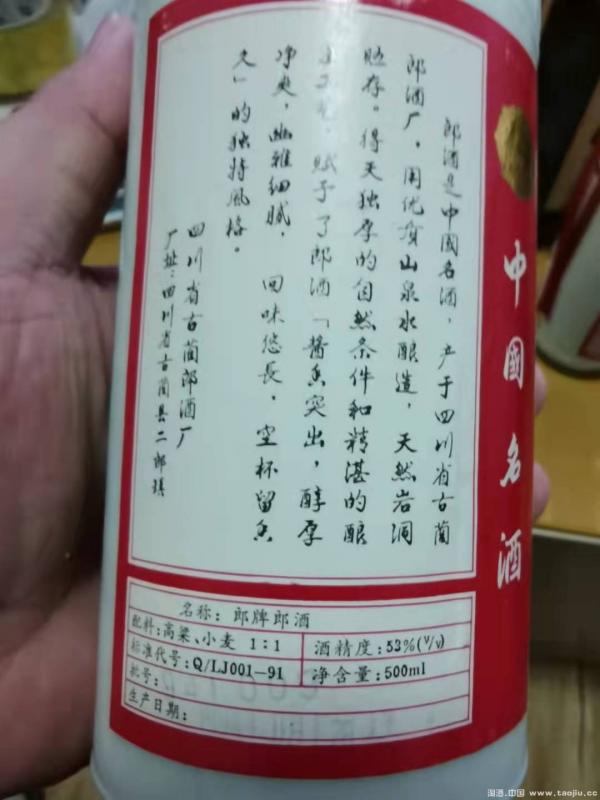 中國名酒
郎酒是中國名酒，产于四川省古蔺
郎酒厂，用优质山泉水酿造，天然岩洞
贮存。得天独厚的自然条件和精湛的酿
艺，赋予了郎酒「酱香突出，醇厚
净爽，幽雅细腻，回味悠長，空杯留香
久」的独特风格。
四川省古蔺郎酒厂
厂址：四川省古蔺县二郎镇
名称：郎牌郎酒
配料：高粱、小麦 1:1
酒精度：53%(V/V)
标准代号：Q/LJ001-91
净含量：500ml
批号：
生产日期：
淘酒.中国 www.taojiu.cc